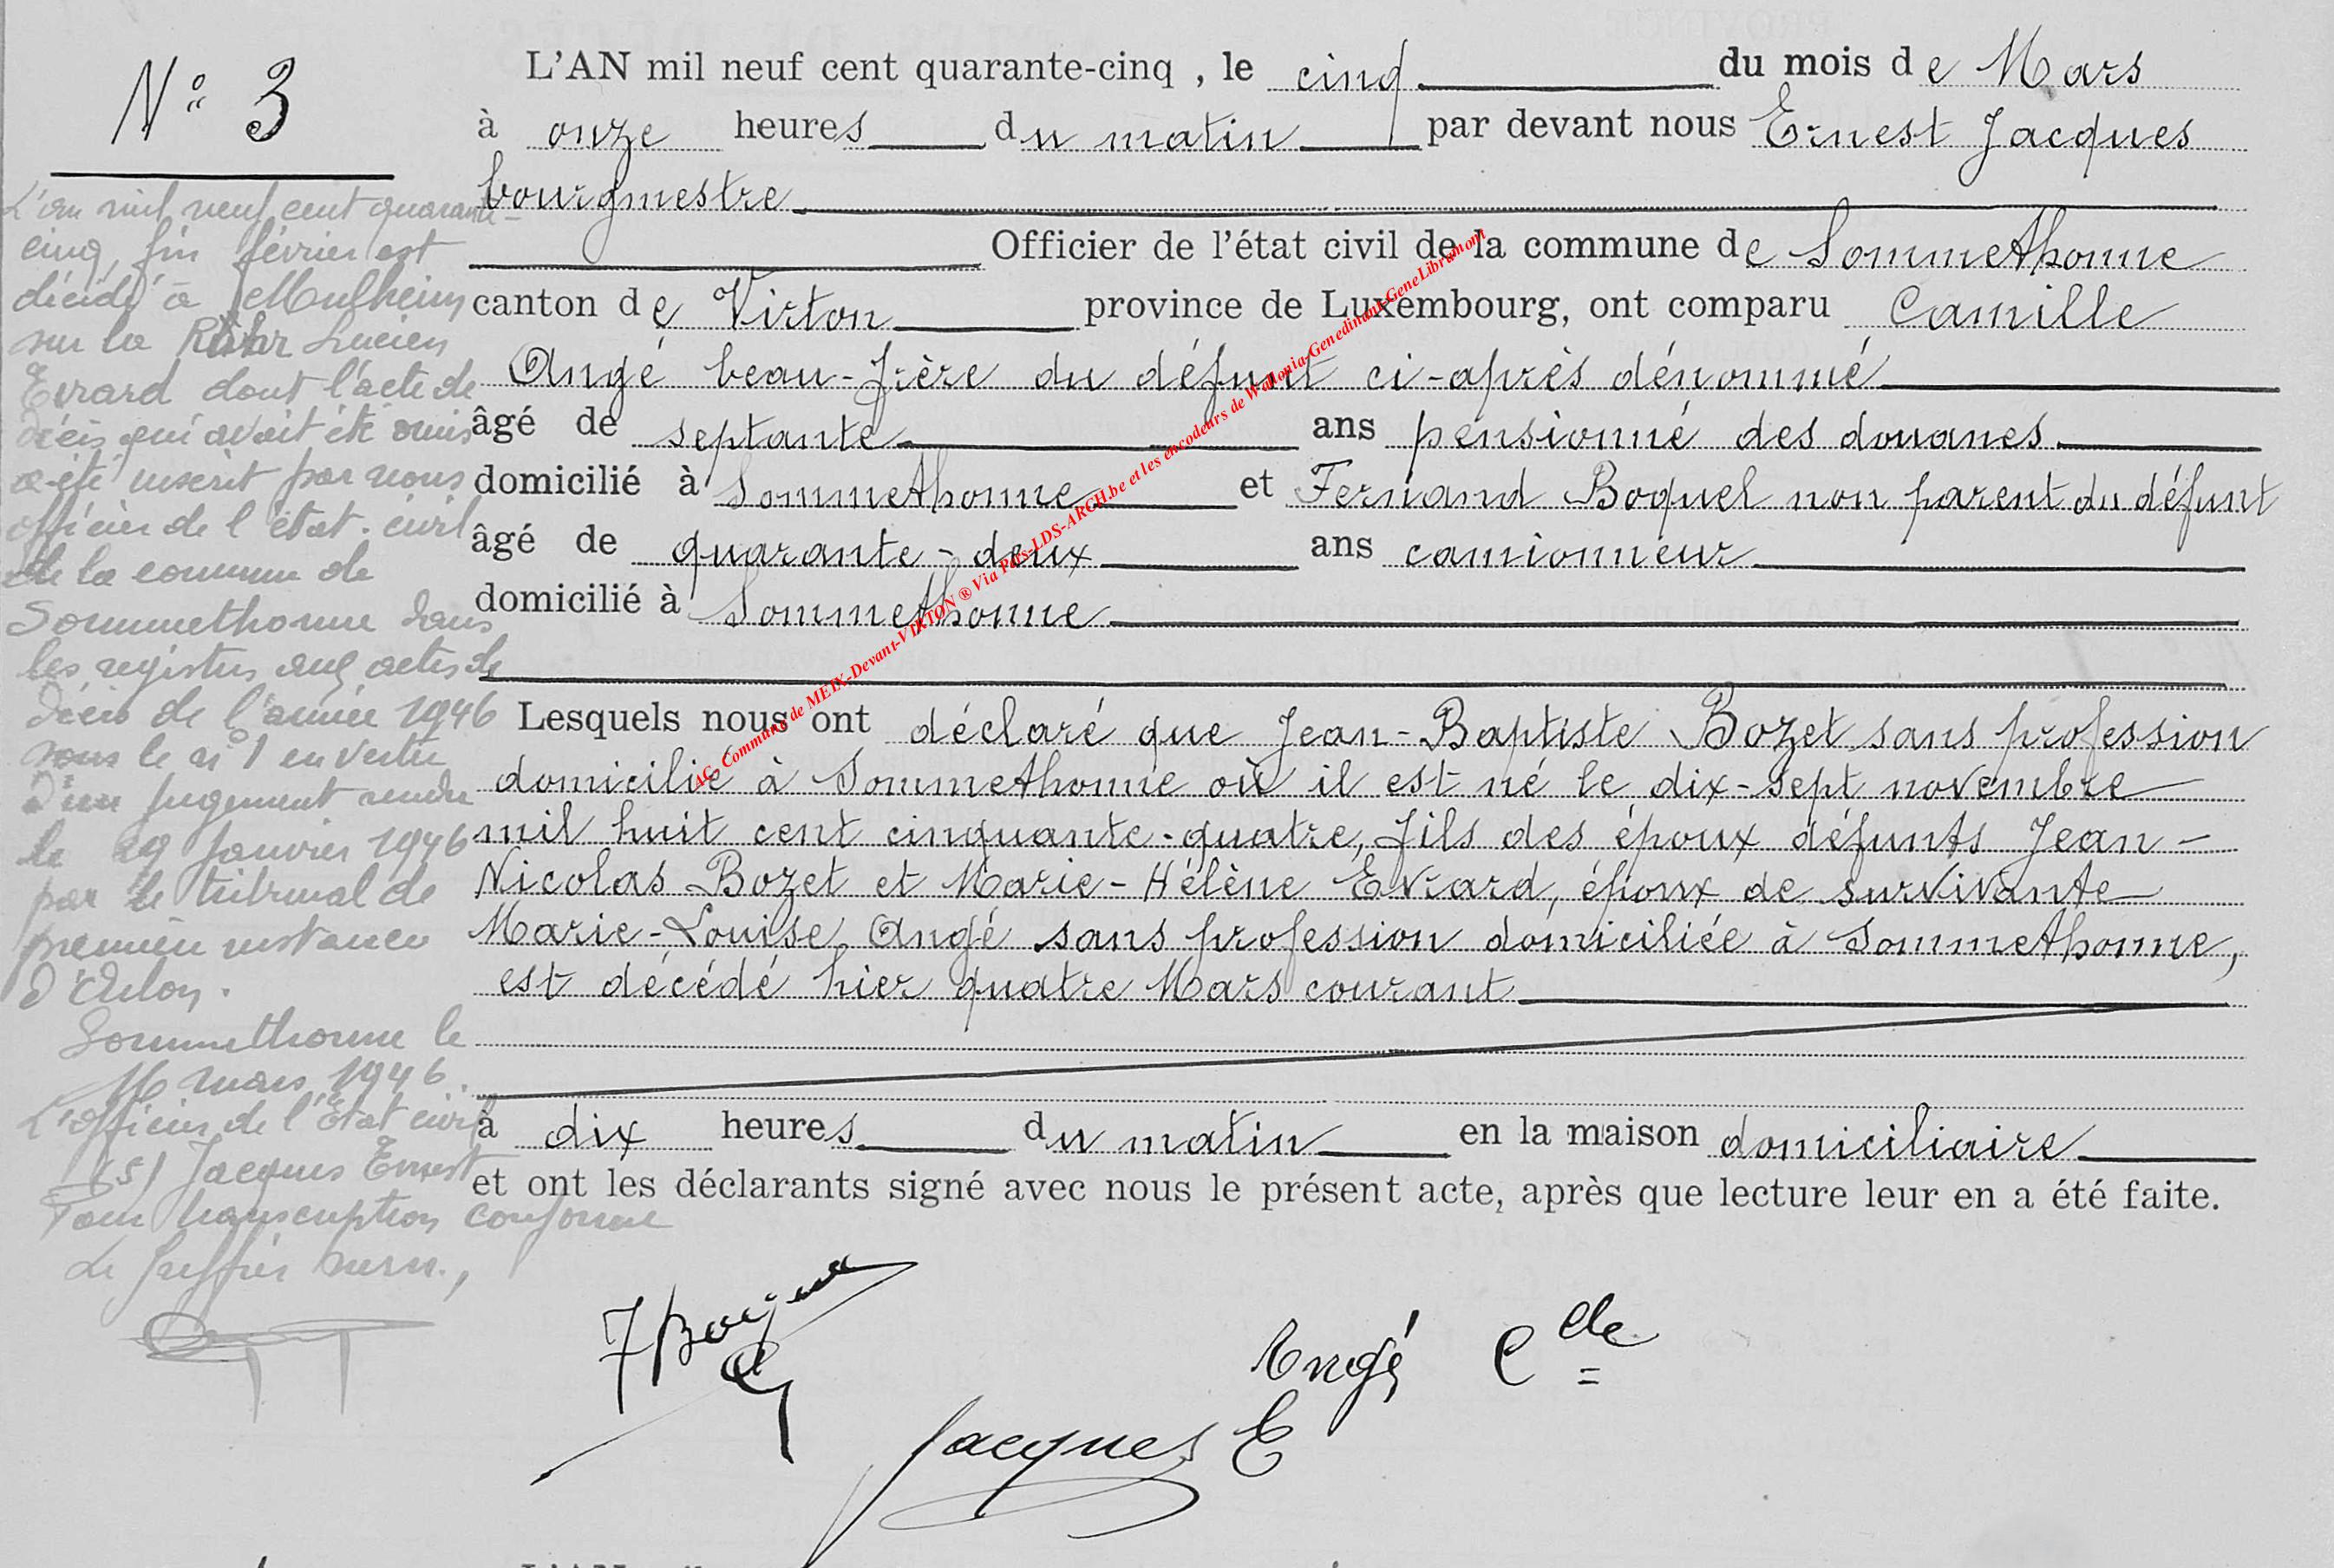 N° 3
L'AN mil neuf cent quarante-cinq , le cinq du mois de Mars
à onze heures du matin par devant nous Ernest Jacques
bourgmestre
Officier de l'état civil de la commune de Sommethonne
canton de Virton province de Luxembourg, ont comparu Camille
Angé beau-frère du défunt ci-après dénommé
âgé de septante ans pensionné des douanes
domicilié à Sommethonne et Fernand Boquel non parent du défunt
âgé de quarante-deux ans camionneur
domicilié à Sommethonne
Lesquels nous ont déclaré que Jean-Baptiste Bozet sans profession
domicilié à Sommethonne où il est né le dix-sept novembre
mil huit cent cinquante-quatre, fils des époux défunts Jean-
Nicolas Bozet et Marie-Hélène Evrard, époux de survivante
Marie-Louise Angé sans profession domiciliée à Sommethonne,
est décédé hier quatre Mars courant
à dix heures du matin en la maison domiciliaire
et ont les déclarants signé avec nous le présent acte, après que lecture leur en a été faite.
L'an mil neuf cent quarante-
cinq, fin février est
décédé à Mulheim
sur la Ruhr Lucien
Evrard dont l'acte de
décès qui avait été omis
a été inscrit par nous
officier de l'état-civil
de la commune de
Sommethonne dans
les registres aux actes de
décès de l'année 1946
sous le n° 1 en vertu
d'un jugement rendu
le 29 Janvier 1946
par le tribunal de
première instance
d'Arlon.
Sommethonne le
16 mars 1946.
L'officier de l'Etat civil
(s) Jacques Ernest
Pour transcription conforme
Le greffier
F Boquel
Angé Clle
Jacques E
AG Commune de MEIX-Devant-VIRTON ® Via Pers-LDS-ARCH.be et les encodeurs de Wallonia-Genedinant-GeneLibramont